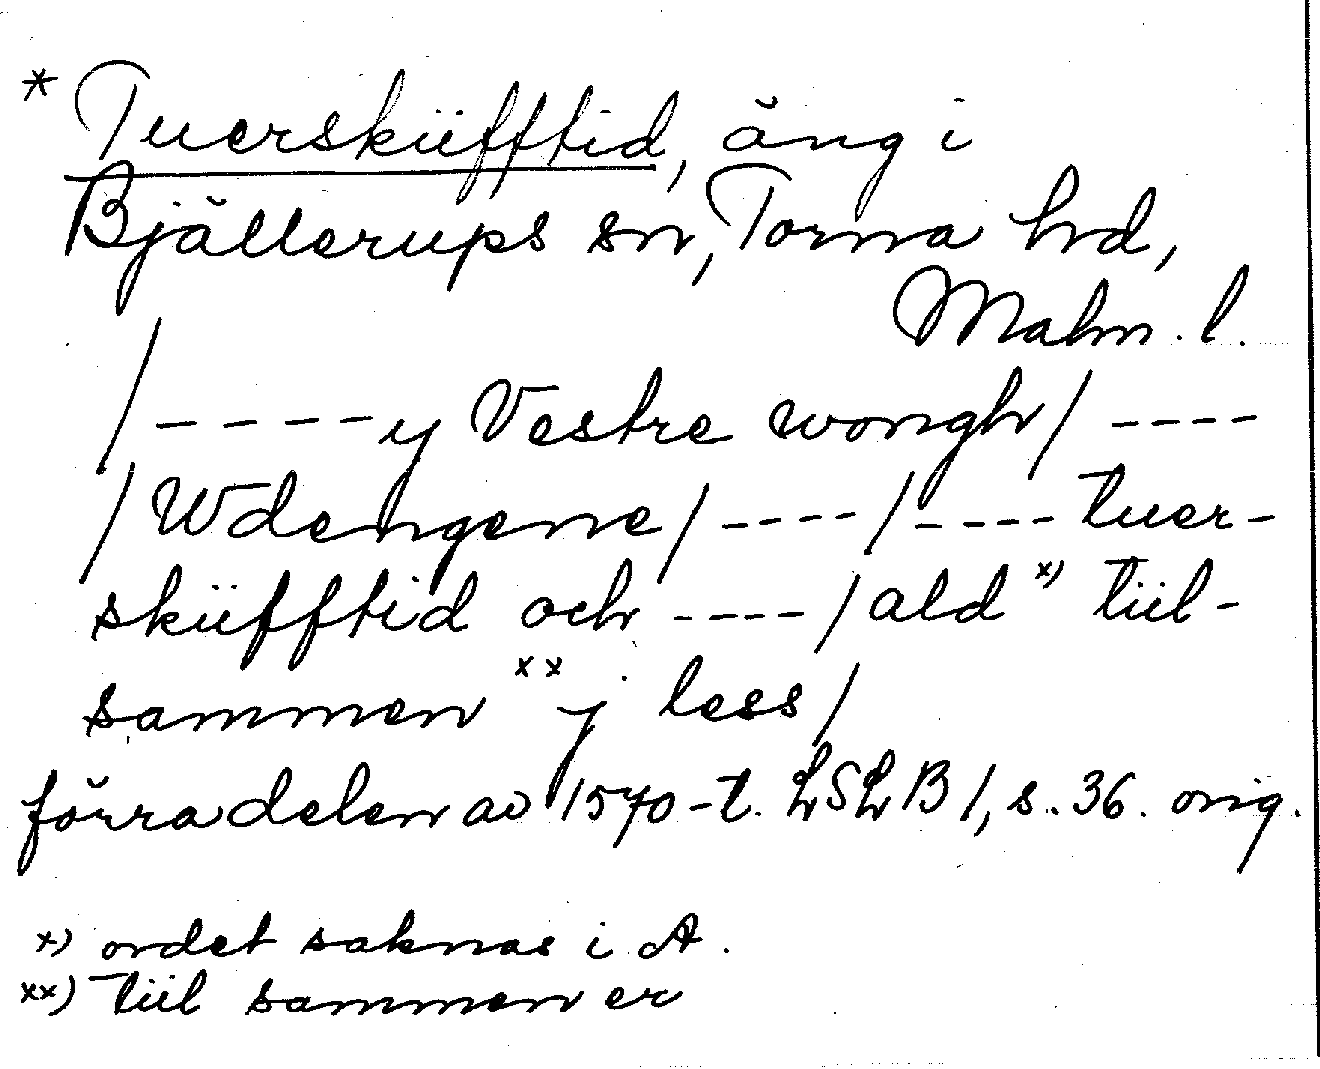 * Tuersküfftid, äng i
Bjällerups sn, Torna hd,
Malm. l.
/ - - - - - y Vestre wongh / - - - -
/ Wdengene / - - - - / - - - - tuer-
sküfftid och - - - - / ald x) tiil-
sammen xx j less /
förra delen av 1570-t. LSLB 1, s. 36. orig.
x) ordet saknas i A.
xx) tiil sammen er